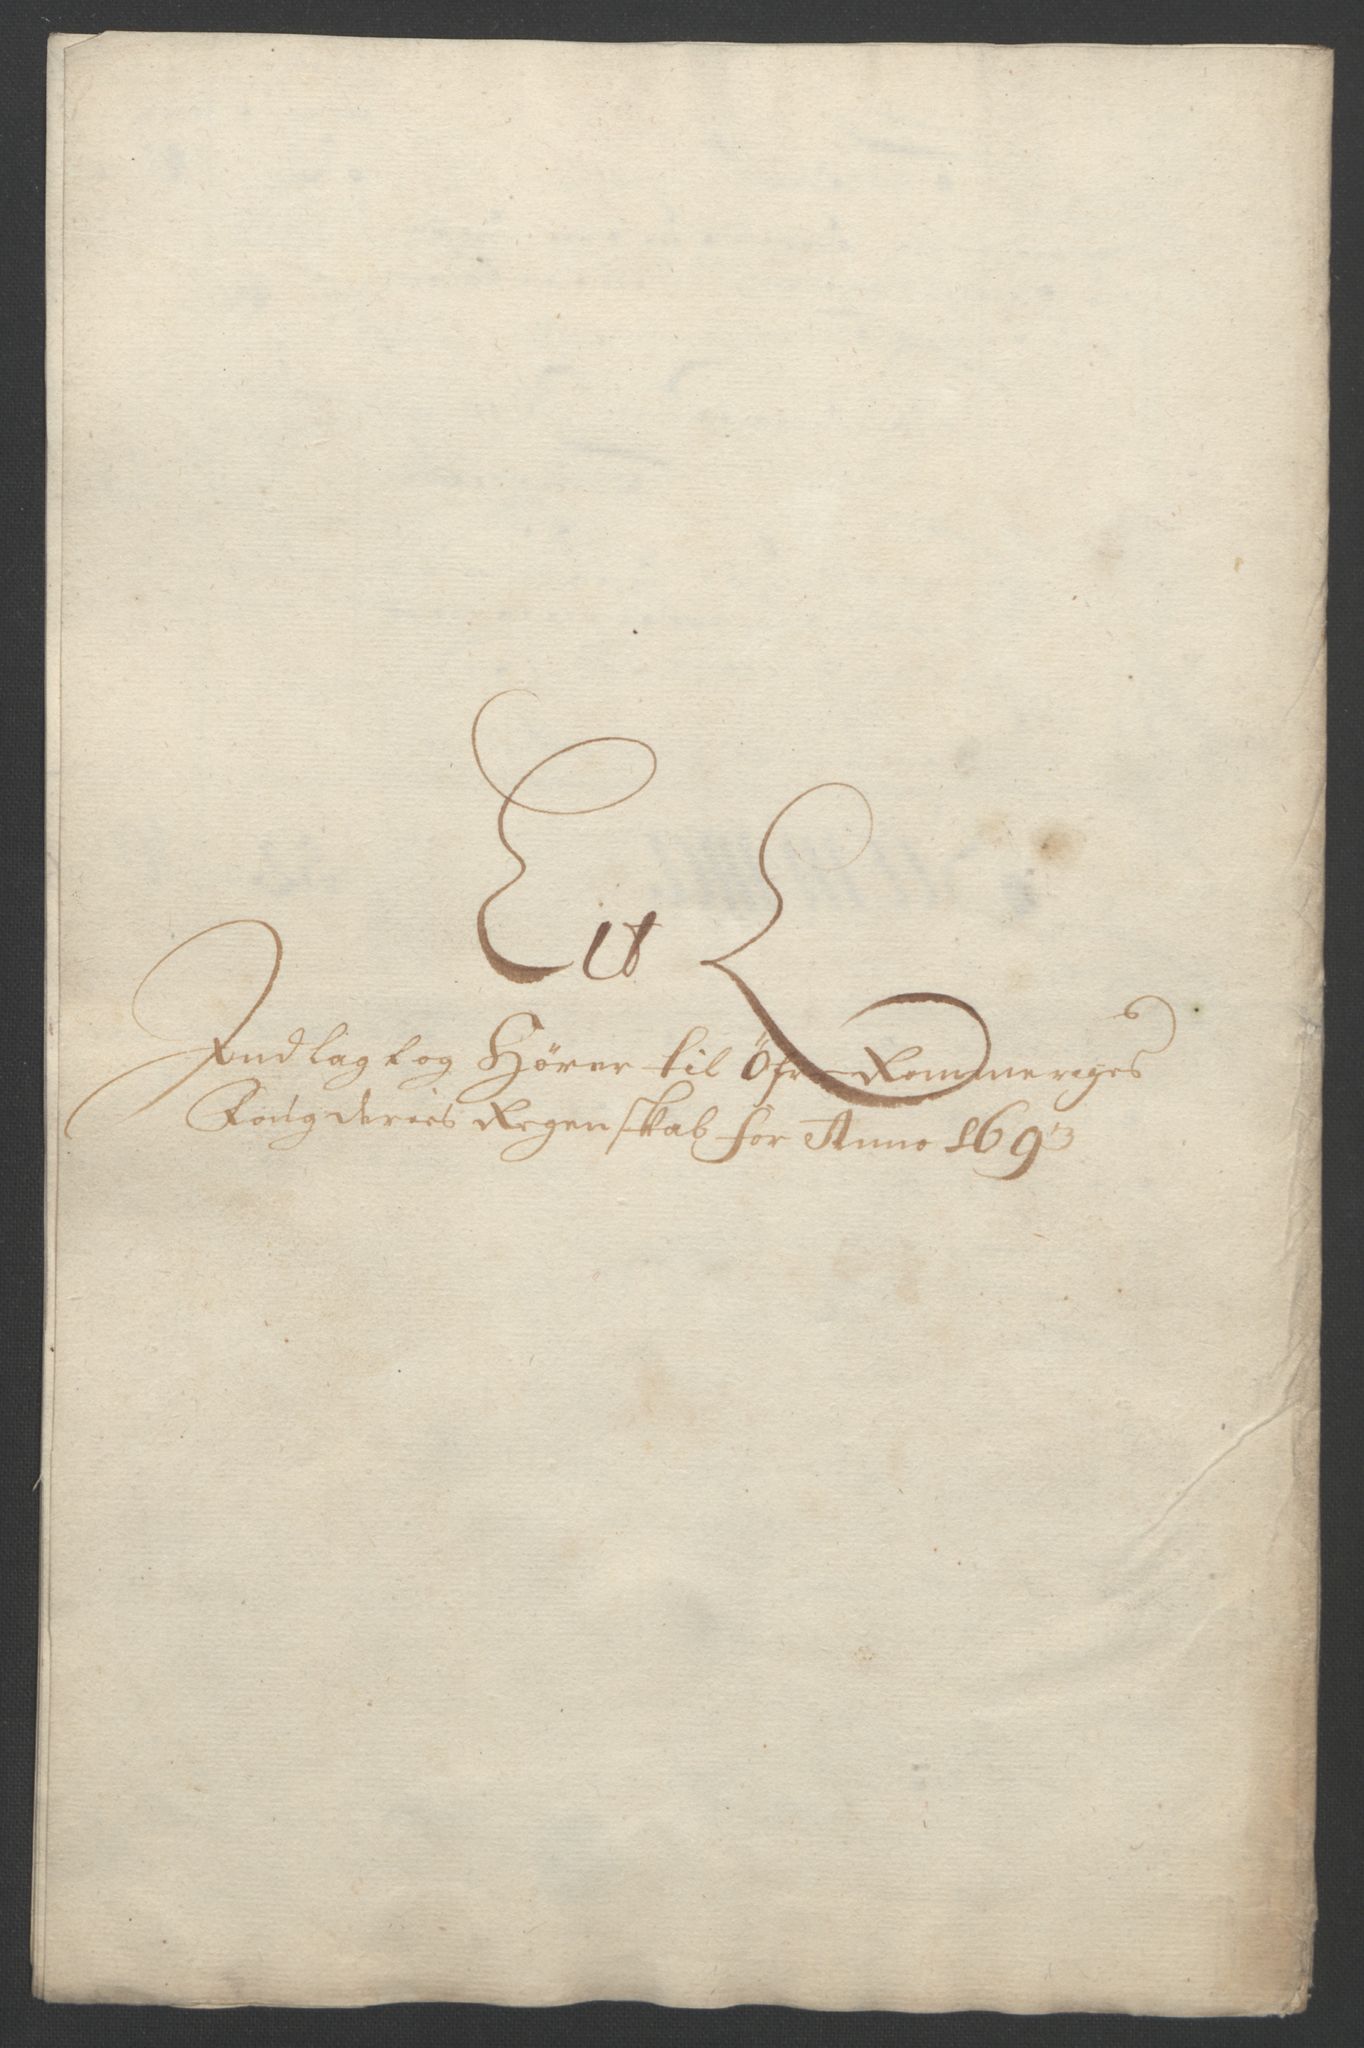 Lit L
Indlagt og Hörer til Öfre Rommeriges
Fougderies Regenskab for Anno 1693